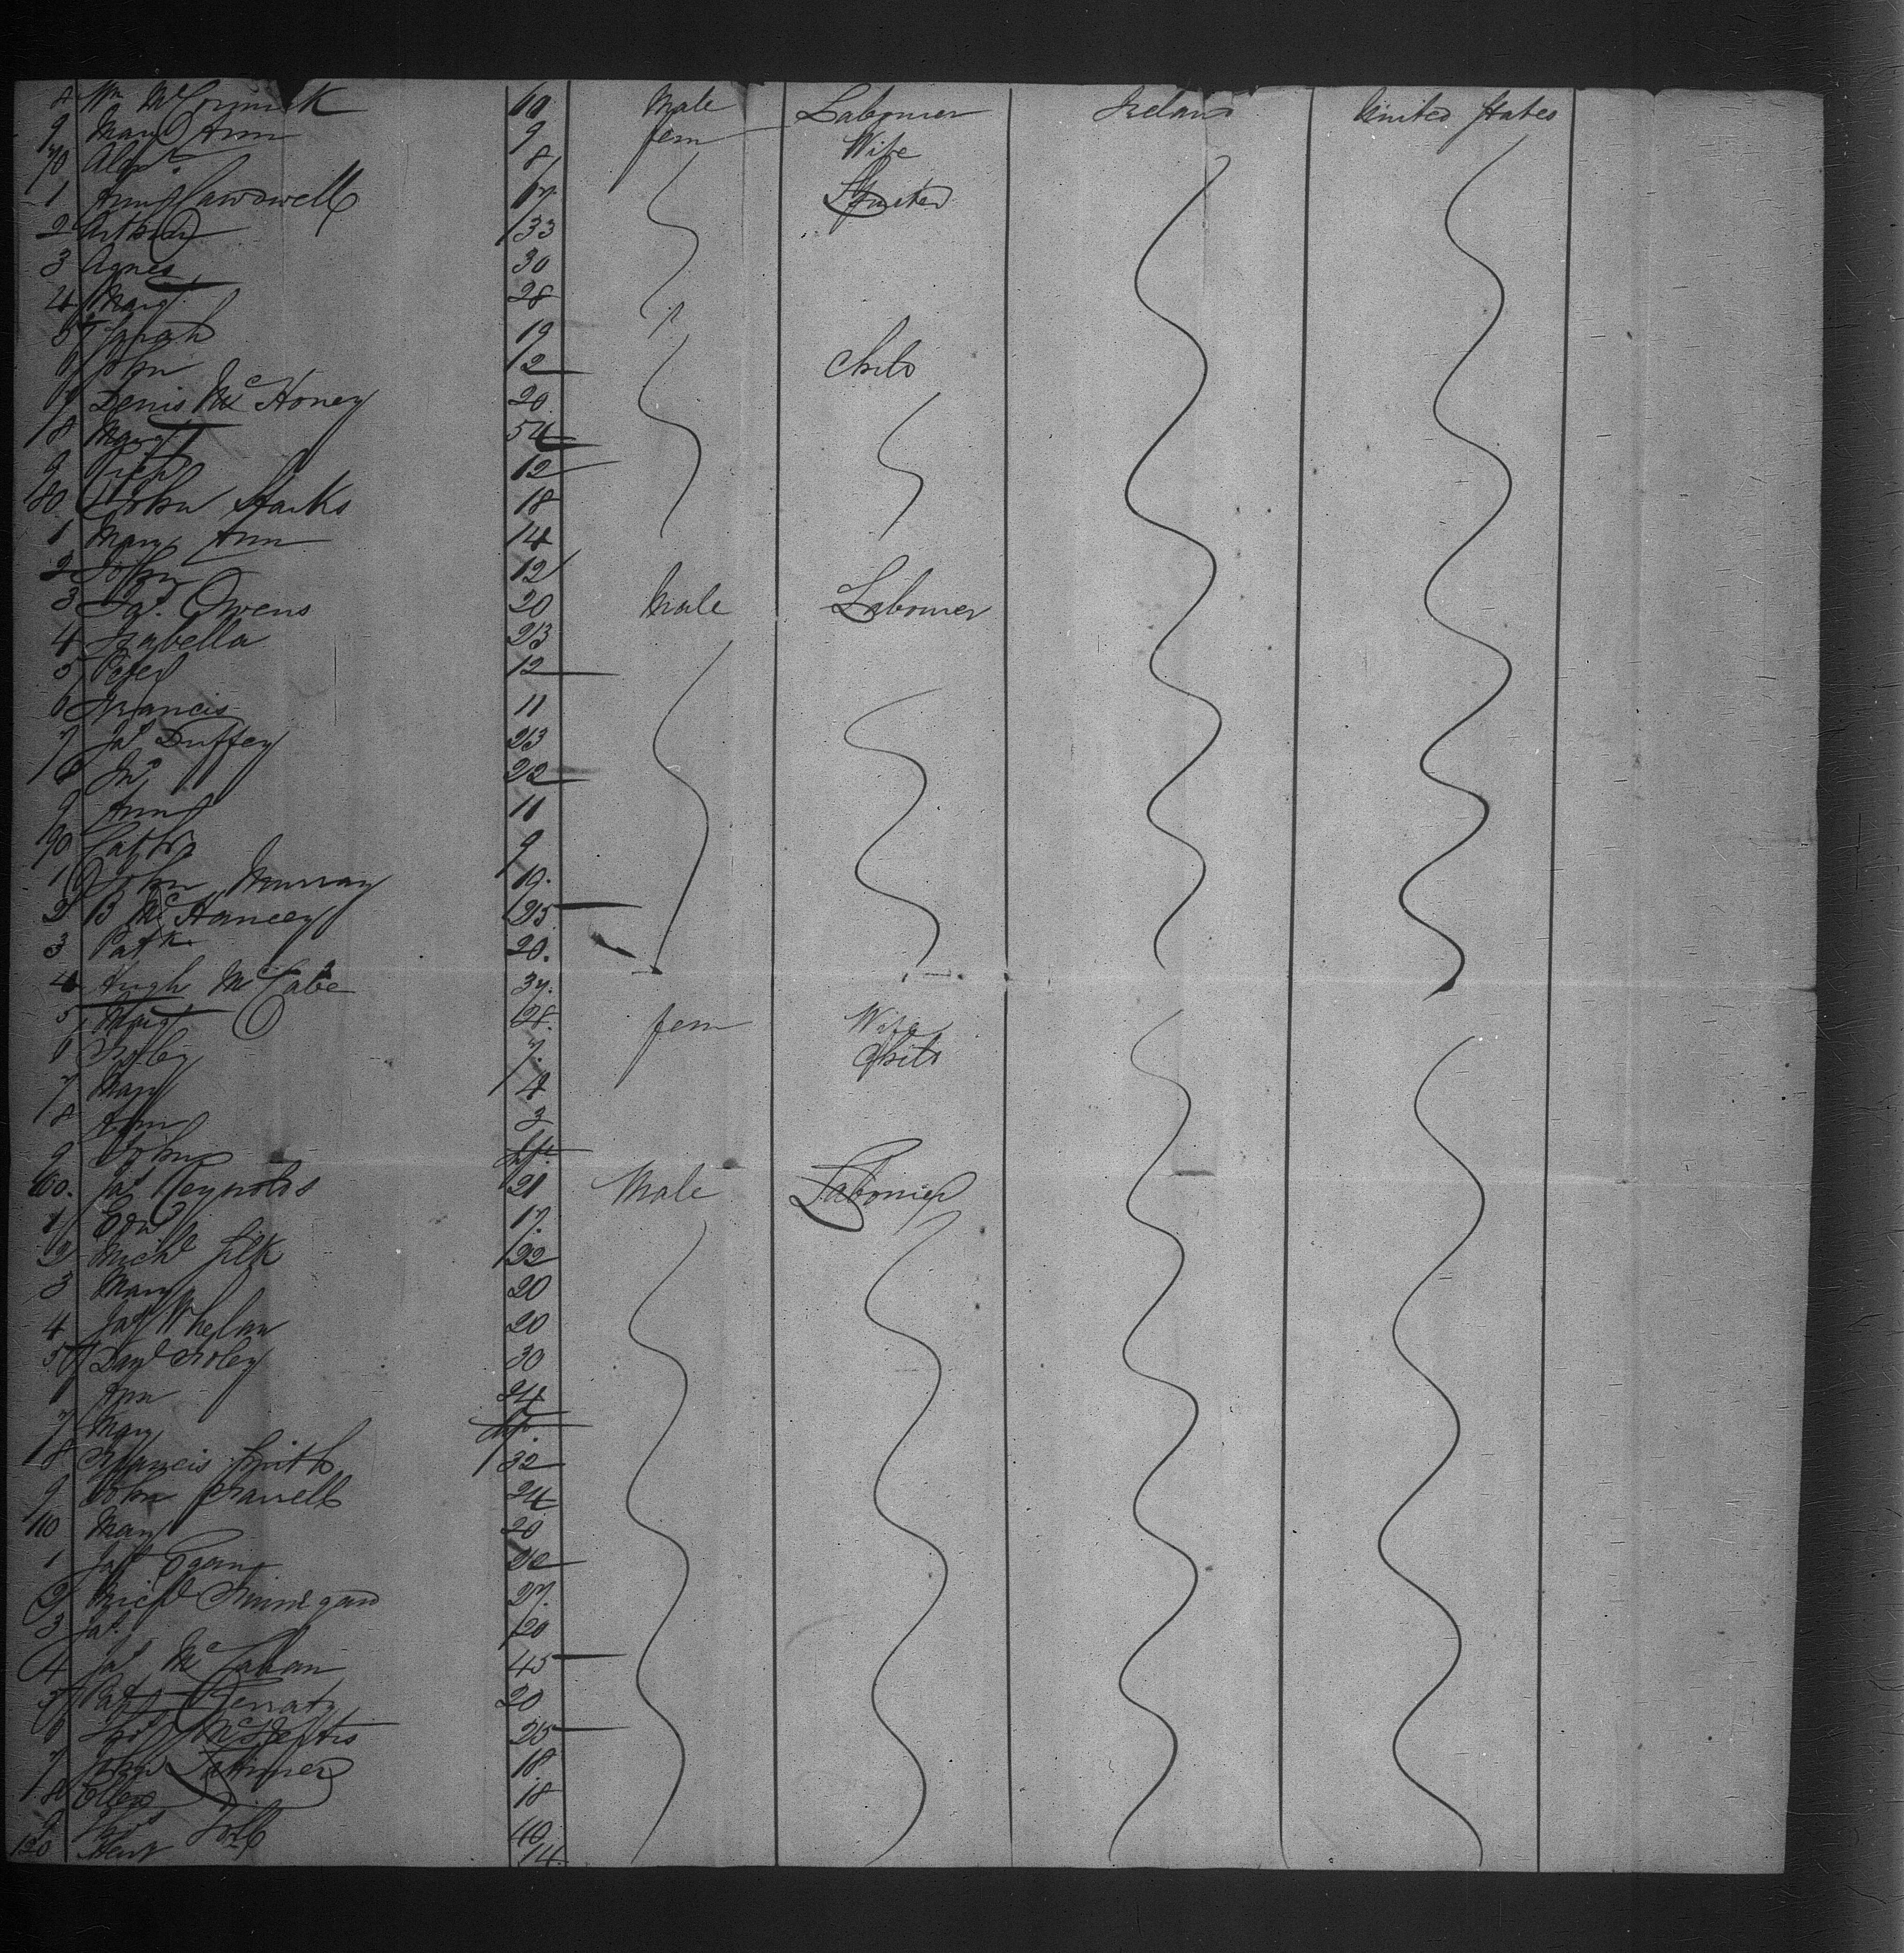 8 Wm McCormick 60 Male Labourer Ireland United States
9 Mary Ann 9 fem Wife
70 8
1 Ann 17 Spinster
2 33
3 Agnes 30
4 Margt 28
5 Sarah 19
6 John 12 Child
7 Denis Mc Honey 20
8 Margt 54
9 Richd 12
80 John Starks 18
1 Mary Ann 14
2 John 12
3 Owens 20 Male Labourer
4 Izabella 23
5 Peter 12
6 Francis 11
7 Jas Duffey 23
8 Jno 22
9 Ann 11
90 Cathn 9
1 John Murray 19
2 B McHancey 25
3 Patk 20
4 Hugh McCabe 37
5 Margt 28 fem Wife
6 7 Child
7 Mary 4
8 Ann 3
9 John Inft
100 Jas Reynolds 21 Male Labourer
1 Edwd 17
2 Michl Silk 22
3 Mary 20
4 Jas Whelan 20
5 Danl Foley 30
6 Ann 24
7 Mary Inft
8 Francis Smith 32
9 John Farrell 24
110 Mary 20
1 Jas 22
2 Michl Finnegan 27
3 Jas 20
4 Jas McCaban 45
5 Pat 20
6 Thos 25
7 John Latimer 18
8 Ellen 18
9 Thos 40
120 14